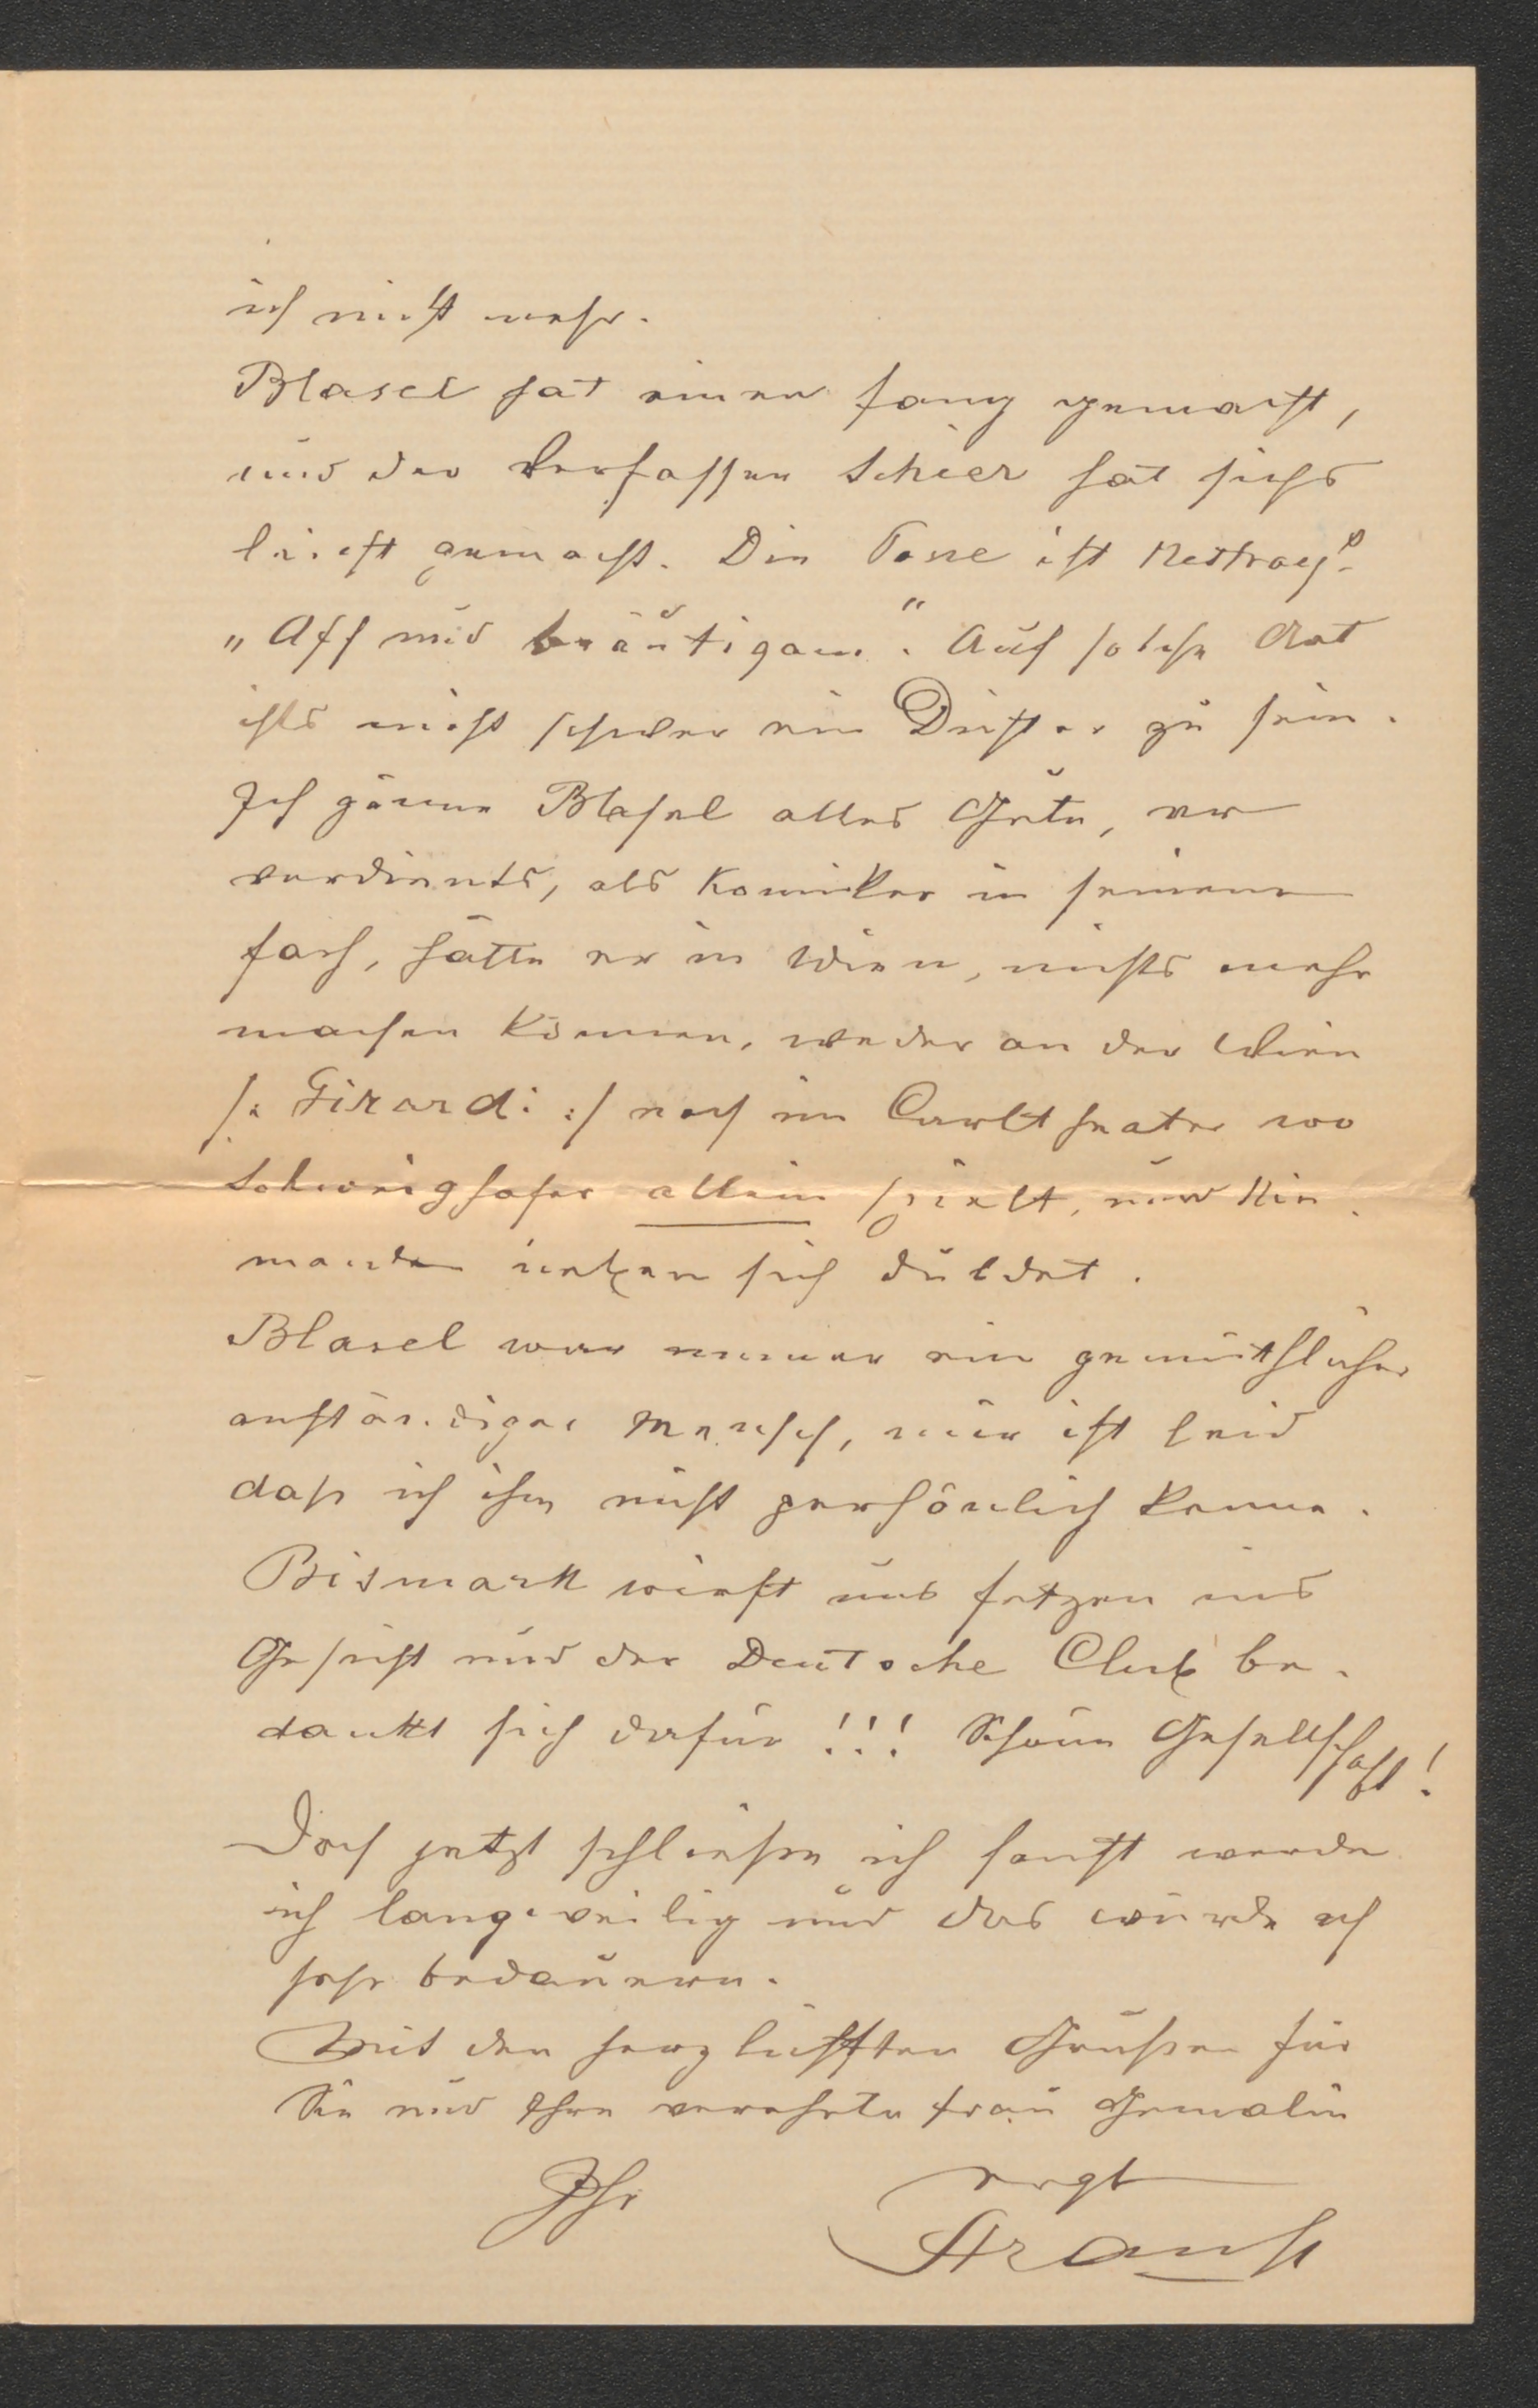 ich nicht mehr.
Blasel hat einen Fang gemacht,
und der Verfasser Schier hat sichs
leicht gemacht. Die Posse ist Nestroy's
„Aff und Bräutigam". Auf solche Art
ists nicht schwer ein Dichter zu sein.
Ich gönne Blasel alles Gute, er
verdients, als Komiker in seinem
Fach, hätte er in Wien, nichts mehr
machen können, weder an der Wien
/: Girardi :/ noch im Carltheater wo
Schweighofer allein spielt, und Nie-
manden neben sich duldet.
Blasel war immer ein gemüthlicher
anständiger Mensch, mir ist leid
daß ich ihn nicht persönlich kenne.
Bismark wirft uns Fetzen ins
Gesicht und der Deutsche Club be-
dankt sich dafür!!! Schöne Gesellschaft!
Doch jetzt schließe ich sonst werde
ich langweilig und das würde ich
sehr bedauern.
Mit den herzlichsten Grüßen für
Sie und Ihre verehrte Frau Gemalin
Ihr ergb
Strauß